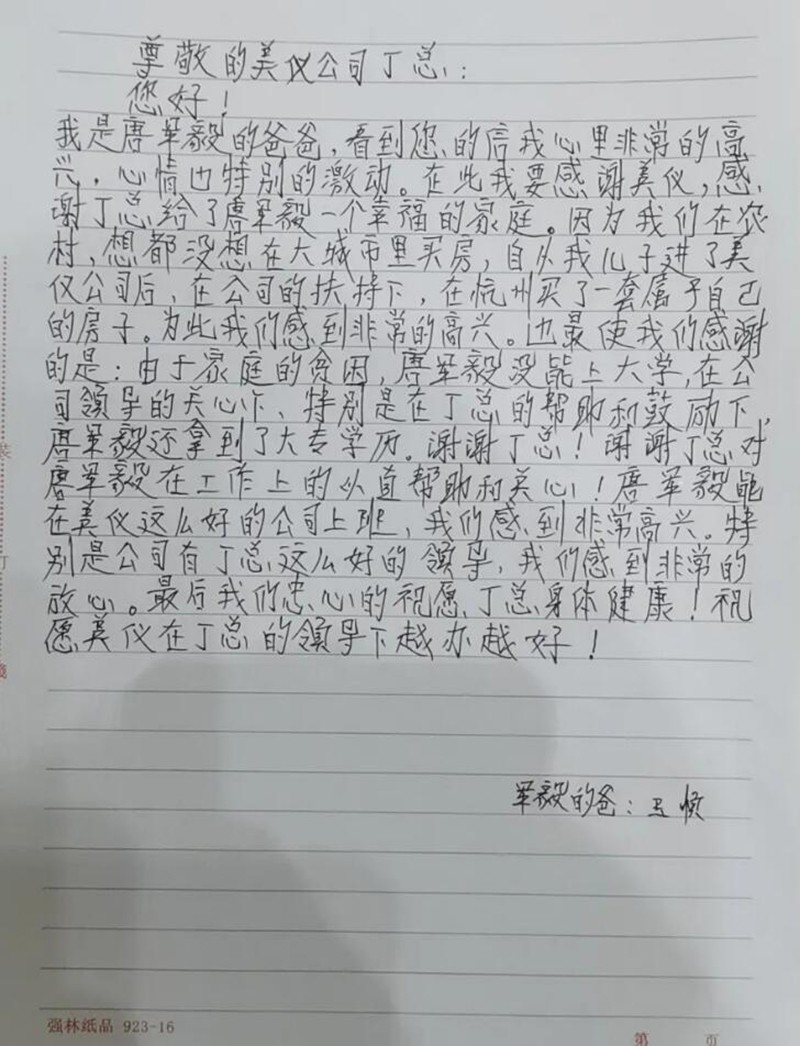 尊敬的美仪公司丁总:
您好!
我是唐军毅的爸爸,看到您的信我心里非常的高
兴,心情也特别的激动。在此我要感谢美仪,感
谢丁总给了唐军毅一个幸福的家庭。因为我们在农
村,想都没想在大城市里买房,自从我儿子进了美
仪公司后,在公司的扶持下,在杭州买了一套属于自己
的房子。为此我们感到非常的高兴。也最使我们感谢
的是:由于家庭的贫困,唐军毅没能上大学,在公
司领导的关心下、特别是在丁总的帮助和鼓励下,
唐军毅还拿到了大专学历。谢谢丁总!谢谢丁总对
唐军毅在工作上的以直帮助和关心!唐军毅能
在美仪这么好的公司上班,我们感到非常高兴。特
别是公司有丁总这么好的领导,我们感到非常的
放心。最后我们忠心的祝愿丁总身体健康!祝
愿美仪在丁总的领导下越办越好!
军毅的爸:
强林纸品 923-16
第 页
装
订